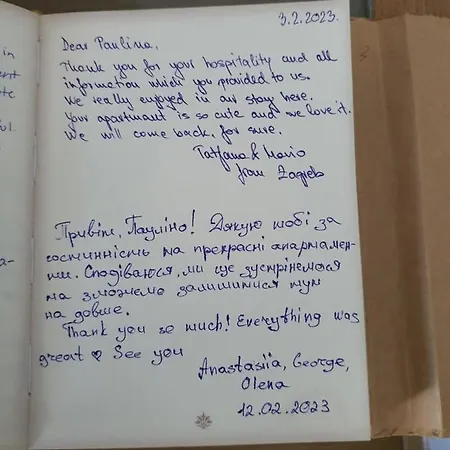 in
3.2.2023.
Dear Paulina,
Thank you for your hospitality and all
information which you provided to us.
We really enjoyed in our stay here.
Your apartmant is so cute and we love it.
We will come back, for sure.
Tatjana & Mario
from Zagreb
Привіт, Пауліно! Дякую тобі за
гостинність та прекрасні апартамен-
ти. Сподіваюся, ми ще зустрінемося
та зможемо залишитися тут
на довше.
Thank you so much! Everything was
great ♥ See you
Anastasiia, George,
Olena
12.02.2023